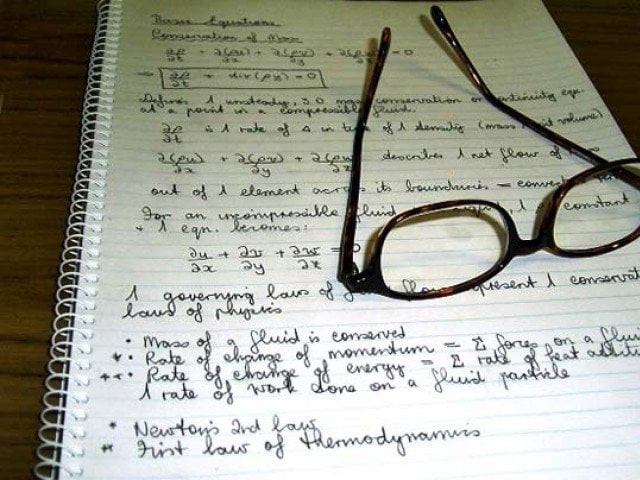 Basic Equations
Conservation of Mass
∂ρ/∂t + ∂(ρu)/∂x + ∂(ρv)/∂y + ∂(ρw)/∂z = 0
⇒ ∂ρ/∂t + div(ρu) = 0
Defines 1 unsteady, 3D mass conservation or continuity eqn.
at a point in a compressible fluid.
∂ρ/∂t is 1 rate of Δ in time of 1 density (mass unit volume)
∂(ρu)/∂x + ∂(ρv)/∂y + ∂(ρw)/∂z describes 1 net flow of mass
out of 1 element across its boundaries =
For an incompressible fluid 1 constant
+ 1 eqn. becomes:
∂u/∂x + ∂v/∂y + ∂w/∂z = 0
1 governing laws of flow represent 1
laws of physics
• Mass of a fluid is conserved
* • Rate of change of momentum = Σ forces on a
** • Rate of change of energy = Σ rate of heat
1 rate of work done on a fluid particle
* Newton's 2nd law
** First law of thermodynamics